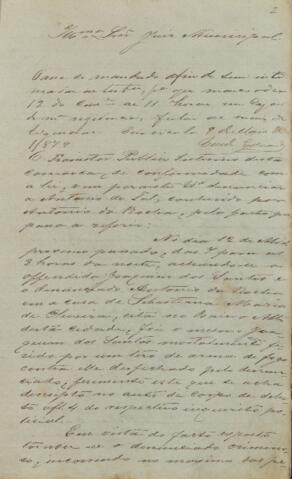 2
Illmo Snr Juiz Municipal
Passe mandado afim de ser inti
mada as test
12 do Corre as 11 horas
1878
O Promotor Publico interino desta
comarca, de conformidade com
a Lei, vem perante Vª denunciar
a Antonio de Tal, conhecido por
Antonio da Rocha, pelo facto que
passa a referir:
No dia 12 de Abril
proximo passado, das 7 para as
8 horas da noite, achando-se o
offendido Joaquim dos Santos e
o denunciado Antonio da Rocha
em a casa de Sebastiana Maria
de Oliveira, sita no Bairro Alto
desta cidade, foi o mesmo Joa
quim dos Santos mortalmente fe
rido por um tiro de arma de fogo
contra elle desfechado pelo denun
ciado, ferimento este que se acha
descripto no auto de corpo de delic
to a fl. 4 do respectivo inquerito po
licial.
Em vista do facto exposto
tornou-se o denunciado crimino
so, incursando no maximo das pe